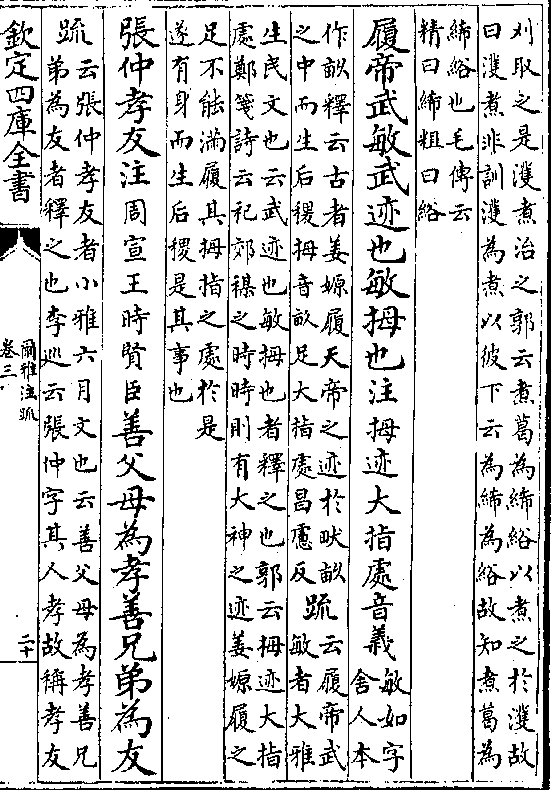 刈取之是濩煮治之郭云煮葛為絺綌以煮之於濩故
曰濩煮非訓濩為煮以彼下云為絺為綌故知煮葛為
絺綌也毛傳云
精曰絺粗曰綌
履帝武敏武迹也敏拇也注拇迹大指處音義
敏如字
舍人本
作畝釋云古者姜嫄履天帝之迹於畎畝
之中而生后稷拇音畝足大指處昌慮反
疏
云履帝武
敏者大雅
生民文也云武迹也敏拇也者釋之也郭云拇迹大指
處鄭箋詩云祀郊禖之時時則有大神之迹姜嫄履之
足不能滿履其拇指之處於是
遂有身而生后稷是其事也
張仲孝友注周宣王時賢臣善父母為孝善兄弟為友
疏
云張仲孝友者小雅六月文也云善父母為孝善兄
弟為友者釋之也李巡云張仲字其人孝故稱孝友
欽定四庫全書
爾雅注疏
卷三
二十